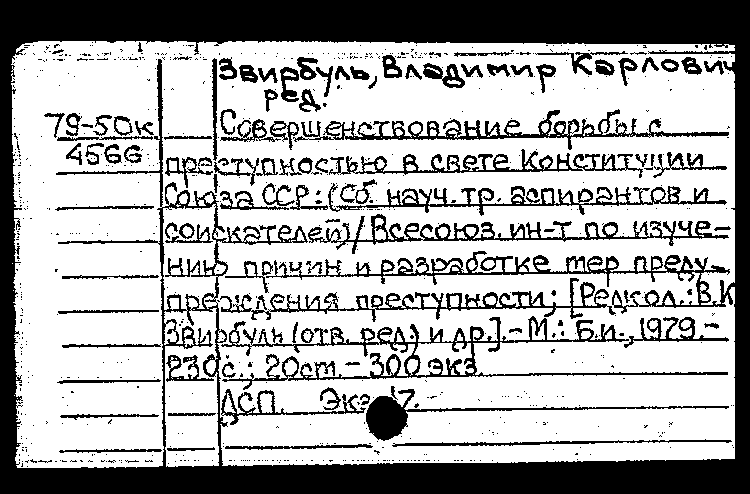 Звирбуль, Владимир Карлович
ред.
79-50к Совершенствование борьбы с
4566 преступностью в свете Конституции
Союза ССР: (Сб. науч. тр. аспирантов и
соискателей) / Всесоюз. ин-т по изуче-
нию причин и разработке мер преду-
преждения преступности; [Редкол.: В.К
Звирбуль (отв. ред.) и др.]. - М.: Б.и., 1979. -
230 с.; 20 см. - 300 экз.
ДСП. Экз. 17.